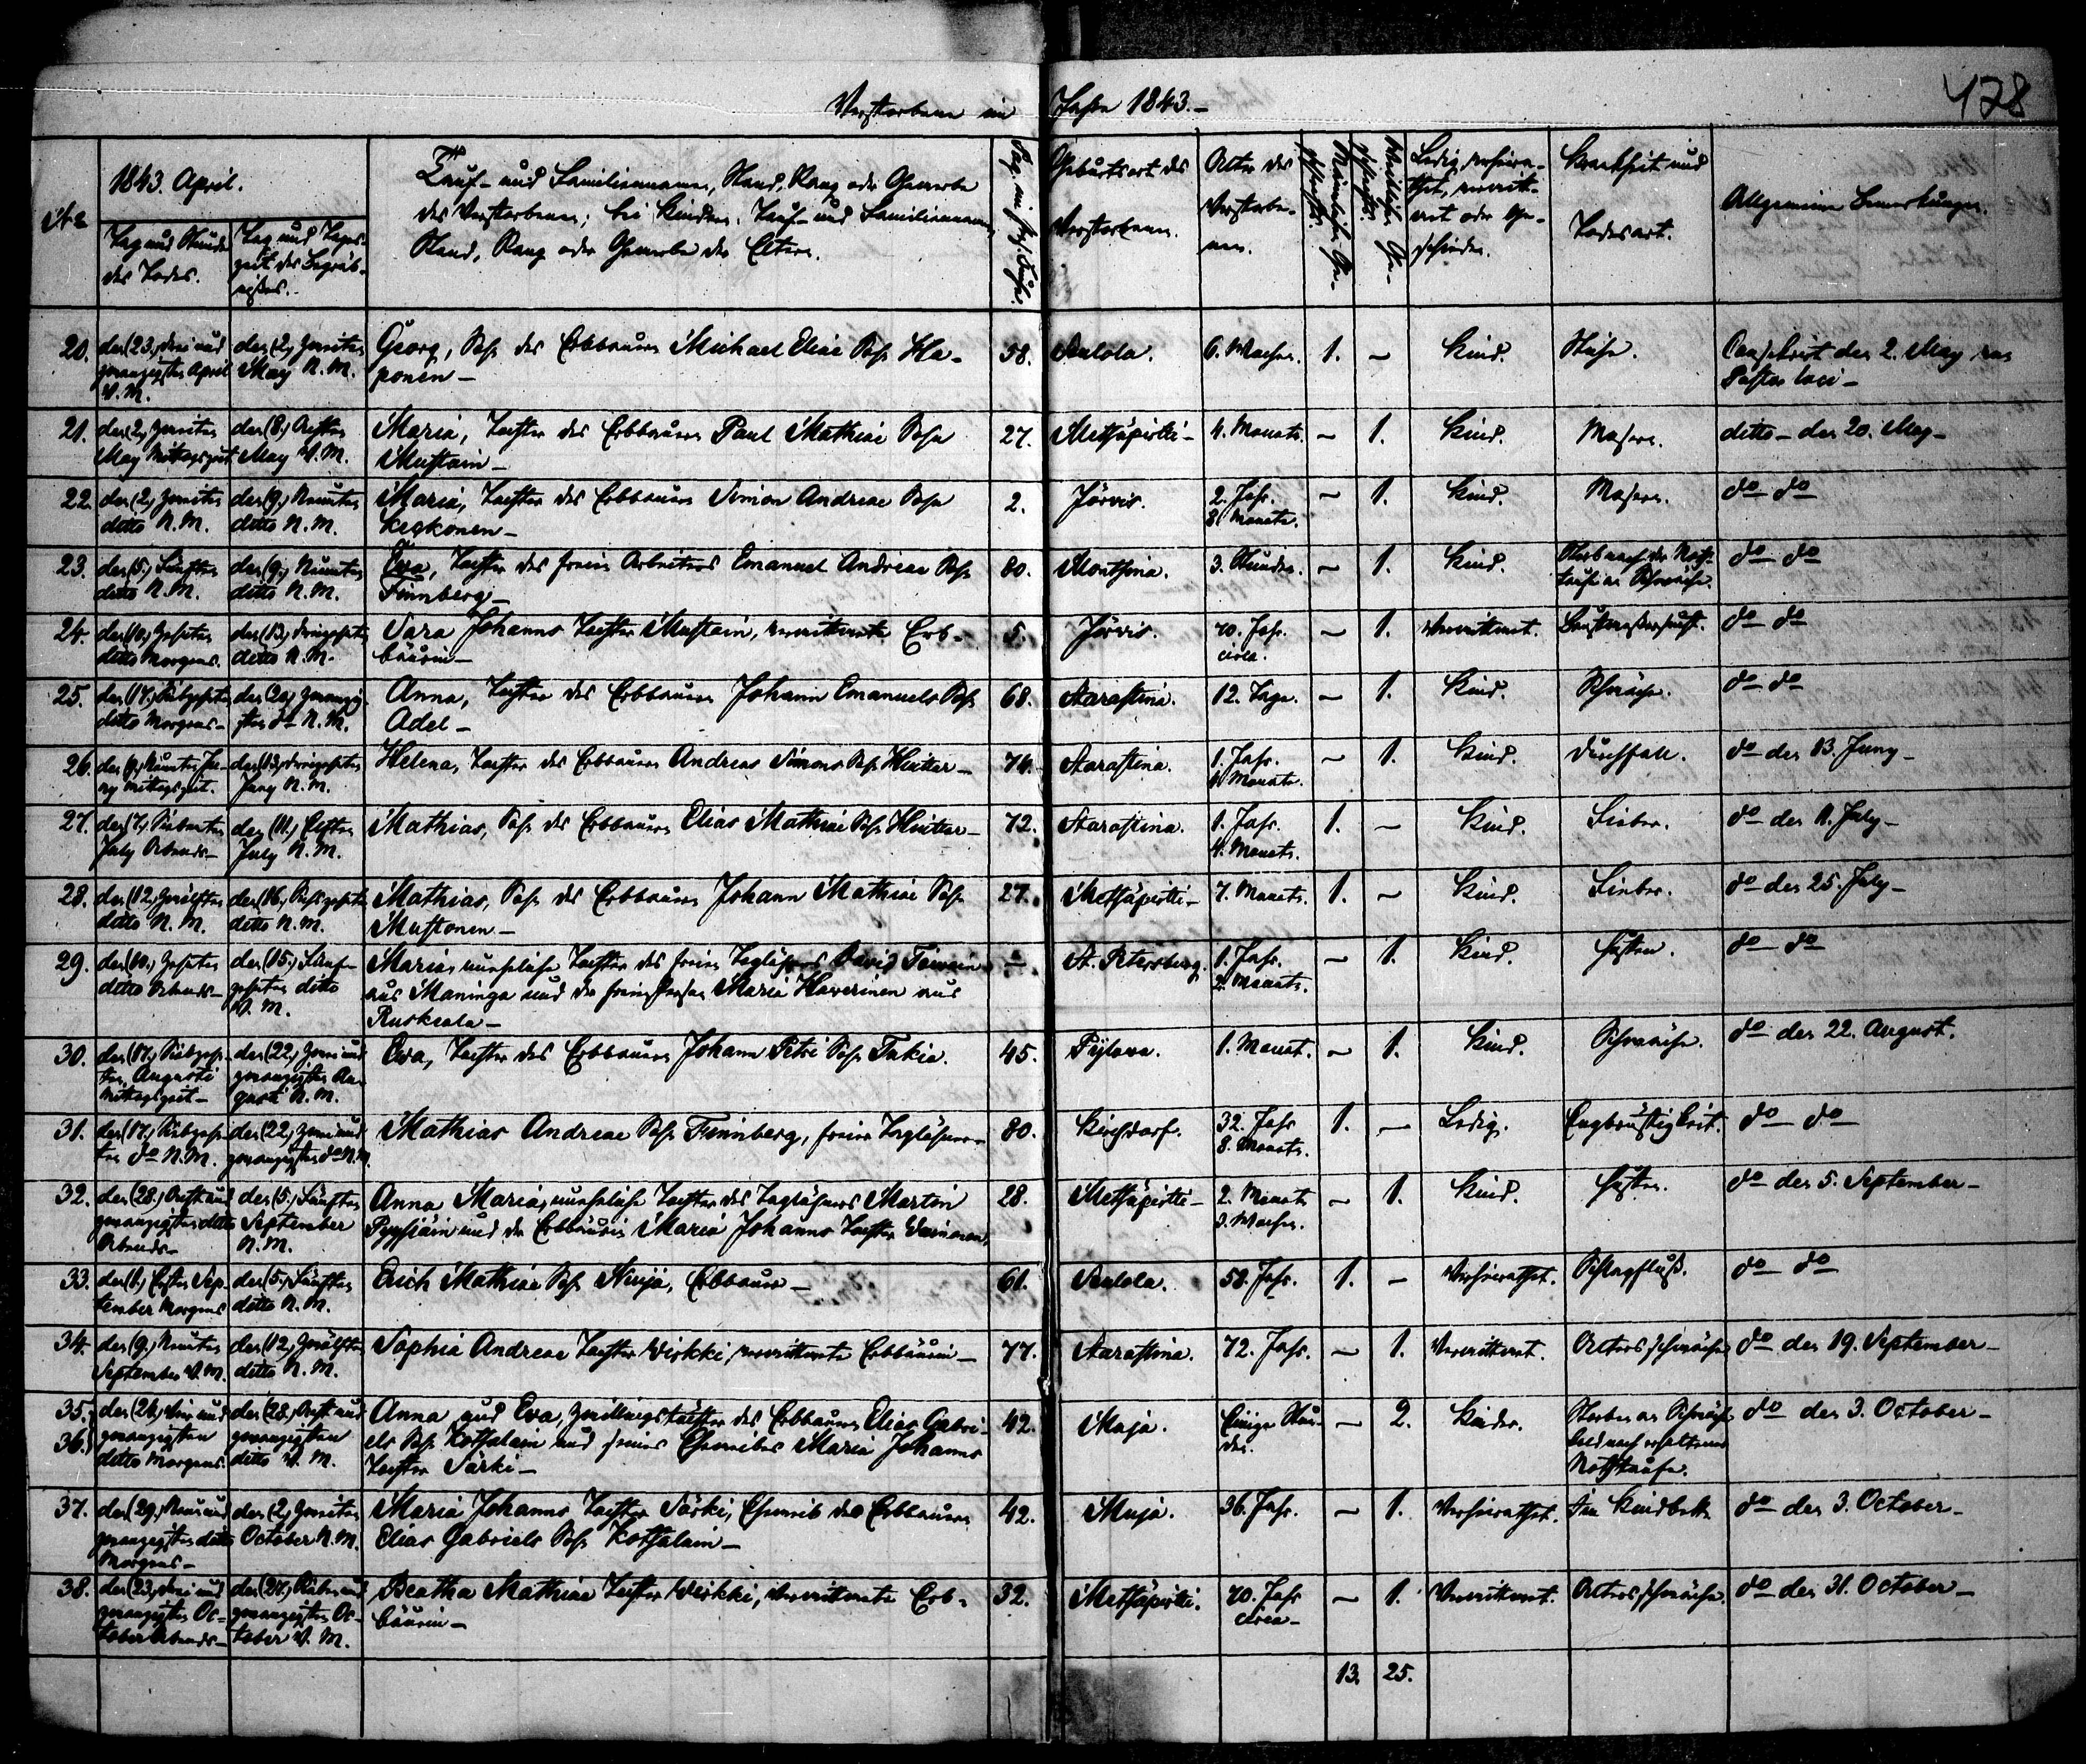 Verstorbene im Jahre 1843.-
478
№
1843. April.
Tag und Stunde des Todes.
Tag und Tageszeit des Begräbnißes.-
Tauf- und Familienname, Stand, Rang oder Gewerbe
des Verstorbenen; bei Kindern, Tauf- und Familienname,
Stand, Rang oder Gewerbe der Eltern.
Geburtsort des Verstorbenen.
Alter des Verstorbenen.
Männlichen Geschlechts.
Weiblichen Geschlechts.
Ledig, verheirathet, verwittwet oder geschieden.
Krankheit und Todesart.
Allgemeine Bemerkungen.
20. den (23.) drei und zwanzigsten April V. M. den (2.) zweiten May N. M. Georg, Sohn des Erbbauern Michael Eliae Sohn Haponen- 58. Aulola. 6. Wochen. 1. - Kind. den 2. May Pastor loci-
21. den (2.) zweiten May Mittagszeit den (8.) Achten May V. M. Maria, Tochter des Erbbauern Paul Mathiae Sohn Mustain- 27. Metsäpirtti- 4. Monate. - 1. Kind. Masern. ditto- den 20. May-
22. den (2.) zweiten ditto N. M. den (9.) Neunten ditto N. M. Maria, Tochter des Erbbauern Simon Andreae Sohn Keskonen- 2. Järvis. 2. Jahr. 8. Monate. - 1. Kind. Masern. do- do
23. den (5.) Fünften ditto N. M. den (9.) Neunten ditto N. M. Eva, Tochter des freien Arbeiters Emanuel Andreae Sohn Finnberg- 80. 3. Stunden. - 1. Kind. Starb nach der Nothtaufe an Schwäche. do- do
24. den (10.) Zehnten ditto Morgens. den (13.) dreizehnten ditto N. M. Sara Johanns Tochter Mustain, verwittwete Erbbäurin- 5. Järvis. 70. Jahr. circa. - 1. Verwittwet. do- do
25. den (17.) Siebzehnten ditto Morgens- den (20.) zwanzigsten do N. M. Anna, Tochter des Erbbauern Johann Emanuels Sohn Adel- 68. Aarastina. 12. Tage. - 1. Kind. Schwäche. do- do
26. den (9.) Neunten Juny Mittagszeit. den (13.) dreizehnten Juny N. M. Helena, Tochter des Erbbauern Andreas Simons Sohn Huttar- 74. Aarastina. 1. Jahr. 4. Monate. - 1. Kind. Durchfall. do- den 13. Juny-
27. den (7.) Siebenten July Abends- den (11.) Elften July N. M. Mathias, Sohn des Erbbauern Elias Mathiae Sohn Huttar- 72. Aarastina. 1. Jahr. 4. Monate. 1. - Kind. Fieber. do- den 11. July-
28. den (12.) Zwölften ditto N. M. den (16.) Sechszehnten ditto N. M. Mathias, Sohn des Erbbauern Johann Mathiae Sohn Mustonen- 27. Metsäpirtti- 7. Monate. 1. - Kind. Fieber. do- den 25. July-
29. den (10.) Zehnten ditto Abends- den (15.) Fünfzehnten ditto V. M. Maria, uneheliche Tochter des freien Taglöhners David Toivain aus Maninga und der Maria Haverinen aus Ruskeala- - St. Petersburg. 1. Jahr. 2. Monate. - 1. Kind. Husten. do- do
30. den (17.) Siebzehnten Augusti Mittagszeit- den (22.) zwei und zwanzigsten August N. M. Eva, Tochter des Erbbauern Johann Petri Sohn Takia. 45. Pyläva. 1. Monat. - 1. Kind. Schwäche. do- den 22. August.
31. den (17.) Siebzehnten do N. M. den (22.) zwei und zwanzigsten do N. M. Mathias Andreae Sohn Finnberg, freier Taglöhner- 80. Kirchdorf. 32. Jahr 8. Monate. 1. - Ledig. Engbrüstigkeit. do- do
32. den (28.) Acht und zwanzigsten ditto Abends- den (5.) Fünften September N. M. Anna Maria, uneheliche Tochter des Taglöhners Martin und der Erbbäurin Maria Johanns Tochter 28. Metsäpirtti- 2. Monate 3. Wochen. - 1. Kind. Husten. do- den 5. September-
33. den (1.) Ersten September Morgens den (5.) Fünften ditto N. M. Erich Mathiae Sohn Neuja, Erbbauer- 61. Aulola. 58. Jahr. 1. - Verheirathet. Schlagfluß. do- do
34. den (9.) Neunten September V. M. den (12.) Zwölften ditto N. M. Sophia Andreae Tochter Wirkki, verwittwete Erbbäurin- 77. Aarastina. 72. Jahr. - 1. Verwittwet. Altersschwäche do- den 19. September-
35. 36. den (24.) Vier und zwanzigsten ditto Morgens. den (28.) Acht und zwanzigsten ditto V. M. Anna und Eva, Zwillingstöchter des Erbbauern Elias Gabriels Sohn Kotsalain und seines Eheweibes Maria Johanns Tochter Särki- 42. Muja. Einige Stunden. - 2. Kinder. Starben an Schwäche bald nach erhaltener Nothtaufe. do- den 3. October-
37. den (29.) Neun und zwanzigsten ditto Morgens- den (2.) Zweiten October N. M. Maria Johanns Tochter Särki, Eheweib des Erbbauern Elias Gabriels Sohn Kotsalain- 42. Muja. 36. Jahr. - 1. Verheirathet. Im Kindbette do- den 3. October-
38. den (23.) drei und zwanzigsten October Abends- den (27.) Sieben und zwanzigsten October V. M. Beatha Mathiae Tochter Wirkki, verwittwete Erbbäurin- 32. Metsäpirtti. 70. Jahr circa- - 1. Verwittwet. Altersschwäche. do- den 31. October-
13. 25.